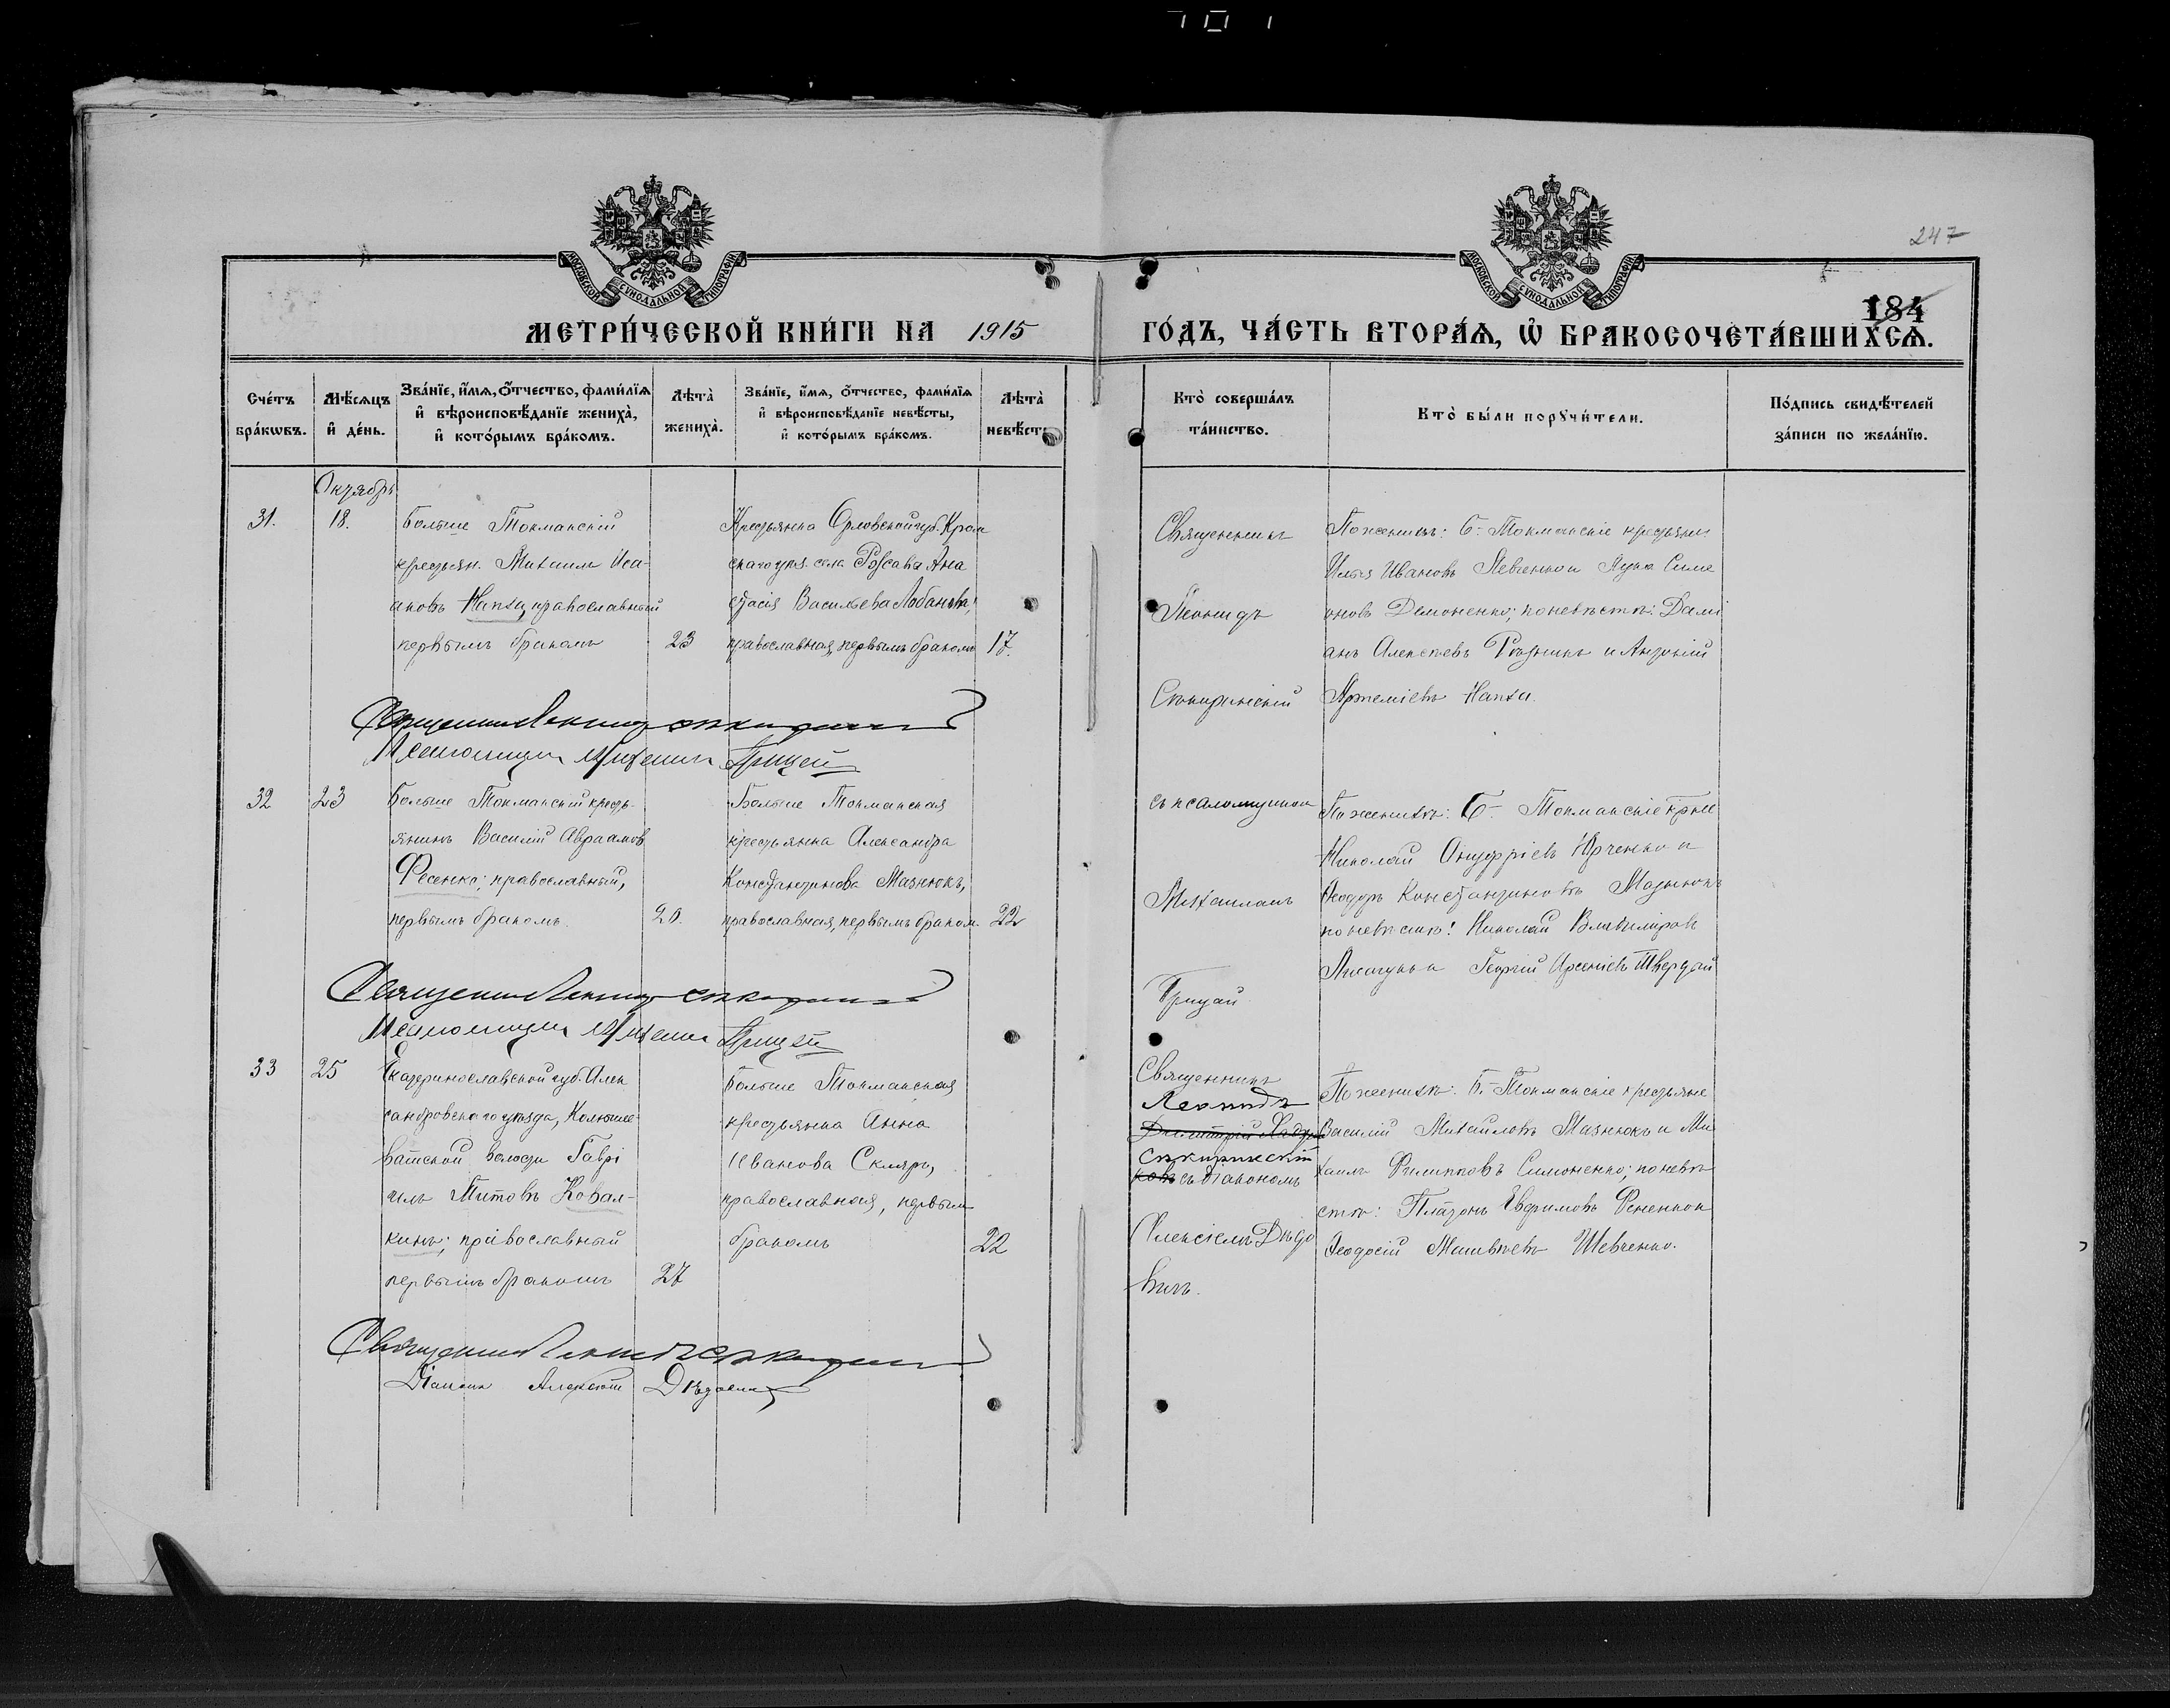 247
184
МОСКОВСКОЙ СѴНОДАЛЬНОЙ ТИПОГРАФІИ
МОСКОВСКОЙ СѴНОДАЛЬНОЙ ТИПОГРАФІИ
МЕТРИ́ЧЕСКОЙ КНИ́ГИ НА 1915
ГО́ДЪ, ЧА́СТЬ ВТОРА́Ѧ, Ѽ БРАКОСОЧЕТА́ВШИХСѦ.
Сче́тъ бра́кѡвъ.
Мѣ́сѧцъ и҆ де́нь.
Зва́нїе, и҆́мѧ, ѻ҆́тчество, фами́лїѧ и҆ вѣроисповѣ́данїе жениха̀, и҆ кото́рымъ бра́комъ.
Лѣта̀ жениха̀.
Зва́нїе, и҆́мѧ, ѻ҆́тчество, фами́лїѧ и҆ вѣроисповѣ́данїе невѣ́сты, и҆ кото́рымъ бра́комъ.
Лѣта̀ невѣ́ст
Кто̀ соверша́лъ та́инство.
Кто̀ бы́ли порꙋчи́тели.
По́дпись свидѣ́телей за́писи по жела́нїю.
Октябрь
31.
18.
Больше Токмакскій
крестьян. Михаилъ Иса-
аковъ Напха, православный
первымъ бракомъ
23
Крестьянка Орловской губ. Кром
скаго уѣз. села Рассава Ана
стасія Васильева Лобанова;
православная, первымъ бракомъ
17.
Священникъ
Леонидъ
Скикринскій
По женихѣ: Б.-Токмакскіе крестьяни
Илья Ивановъ Левченко и Лука Симе
оновъ Демоненко; по невѣстѣ: Дамі
анъ Алексѣевъ и Антоній
Артеміевъ Напха.
Псаломщикъ Михаилъ Грицай
32
23
Больше Токмакскій кресть-
янинъ Василій Авраамов
Фесенко; православный,
первымъ бракомъ.
20.
Больше Токмакская
крестьянка Александра
Константинова Мазнюкъ,
православная, первымъ браком.
22
съ псаломщиком
Михаиломъ
Грицай
По женихѣ: Б.- Токмакскіе кр-не
Николай Онуфріевъ Юрченко и
Ѳеодоръ Константиновъ Мазнюкъ
по невѣстѣ: Николай Владиміров
Лисогуб и Георгій Арсеніевъ Твердой
Псаломщикъ Михаилъ Грицай
33
25
Екатеринославской губ. Алек
сандровскаго уѣзда, Камыше-
ватской волости Гаврі
илъ Титовъ Ковал-
кинъ; православный
первымъ бракомъ
27
Больше Токмакская
крестьянка Анна
Иванова Скляръ,
православная, первым
бракомъ
22
Священникъ
Леонидъ
Димитрій
Скикринскій
ковъ съ діакономъ
Алексіемъ Дѣдо
вичъ.
По женихѣ: Б.-Токмакскіе крестьяне
Василій Михайловъ Мазнюкъ и Ми
хаилъ Филипповъ Симоненко; по невѣ
стѣ: Платонъ Евфимовъ Фененко и
Ѳеодосій Матвѣевъ Шевченко.
Діаконъ Алексій Дѣдович